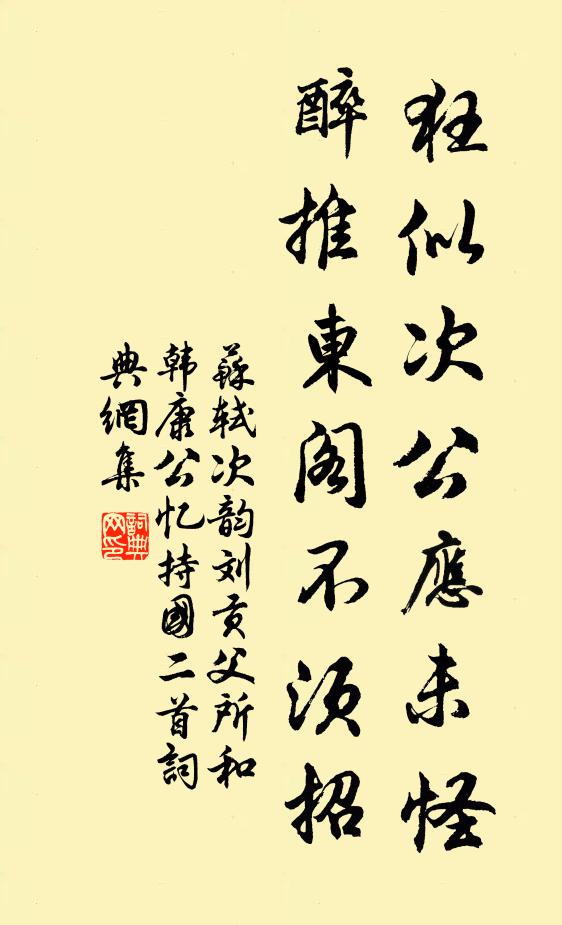 狂似次公應未怪
醉推東阁不须招
蘇軾次韵刘贡父所和
韩康公忆持國二首詞
典網集
詞典
网印